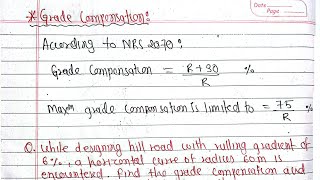 Date
Page
* Grade Compensation:
According to NRS 2070:
Grade Compensation = R+30/R %
Maxm grade compensation is limited to = 75/R %
Q. While designing hill road with rulling gradient of
6%, a horizontal curve of radius 60m is
encountered. Find the grade compensation and